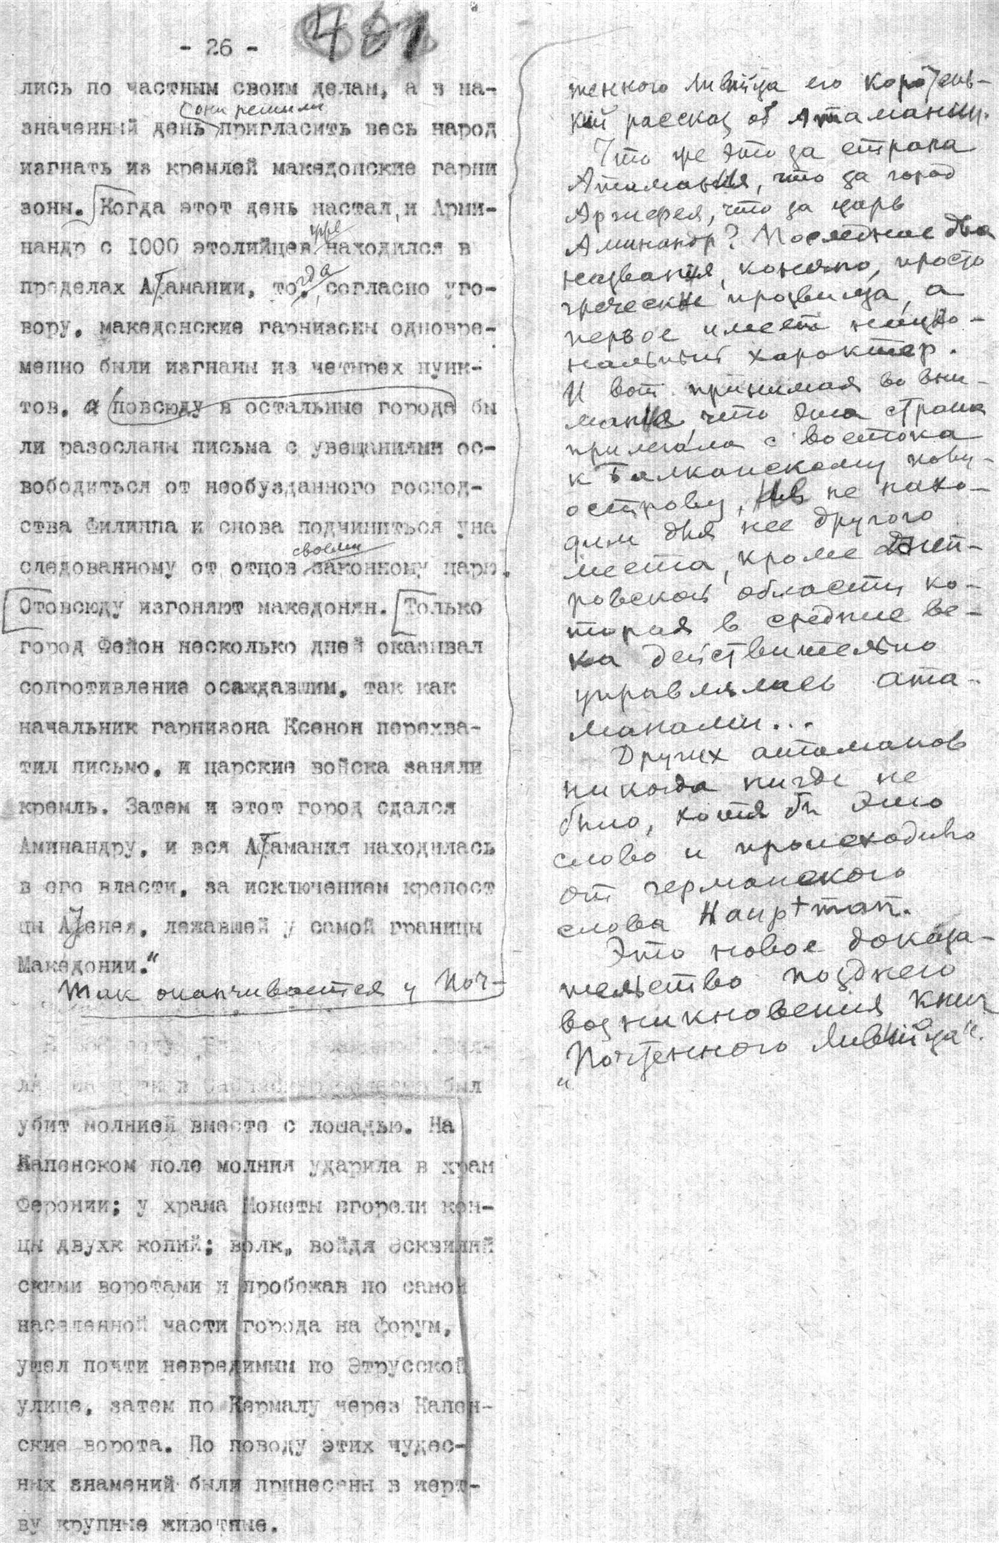 - 26 -
481
лись по частным своим делам, а в на-
они решили
значенный день пригласить весь народ
изгнать из кремлей македонские гарни
зоны. Когда этот день настал, и Арми-
уже
нандр с 1000 этолийцев находился в
пределах Атамании, тогда, согласно уго-
вору, македонские гарнизоны одновре-
менно были изгнаны из четырех пунк-
тов, а повсюду в остальные города бы
ли разосланы письма с увещаниями ос-
вободиться от необузданного господ-
ства Филиппа и снова подчиниться уна
своему
следованному от отцов законному царю.
Отовсюду изгоняют македонян. Только
город Фейон несколько дней оказывал
сопротивление осаждавшим, так как
начальник гарнизона Ксенон перехва-
тил письмо, и царские войска заняли
кремль. Затем и этот город сдался
Аминандру, и вся Атамания находилась
в его власти, за исключением крепост
цы Атенея, лежавшей у самой границы
Македонии."
Так оканчивается у Поч-
тенного Ливийца его коротень-
кий рассказ об Атамании.
Что же это за страна
Атамания, что за город
Аргифея, что за царь
Аминандр? Последние два
названия, конечно, просто
греческие прозвища, а
первое имеет нацио-
нальный характер.
И вот принимая во вни-
мание, что эта страна
прилегала с востока
к Балканскому полу-
острову, мы не нахо-
дим для нее другого
места, кроме Днеп-
ровской области, ко-
торая в средние ве-
ка действительно
управлялась ата-
манами...
Других атаманов
никогда нигде не
было, хотя бы это
слово и происходило
от германского
слова Hauptmann.
Это новое доказа-
тельство позднего
возникновения книг
"Почтенного Ливийца".
был
убит молнией вместе с лошадью. На
Капенском поле молния ударила в храм
Феронии; у храма Монеты сгорели кон-
цы двухк копий; волк, войдя Эсквилий
скими воротами и пробежав по самой
населенной части города на форум,
ушел почти невредимым по Этрусской
улице, затем по Кермалу через Капен-
ские ворота. По поводу этих чудес-
ных знамений были принесены в жерт-
ву крупные животные.